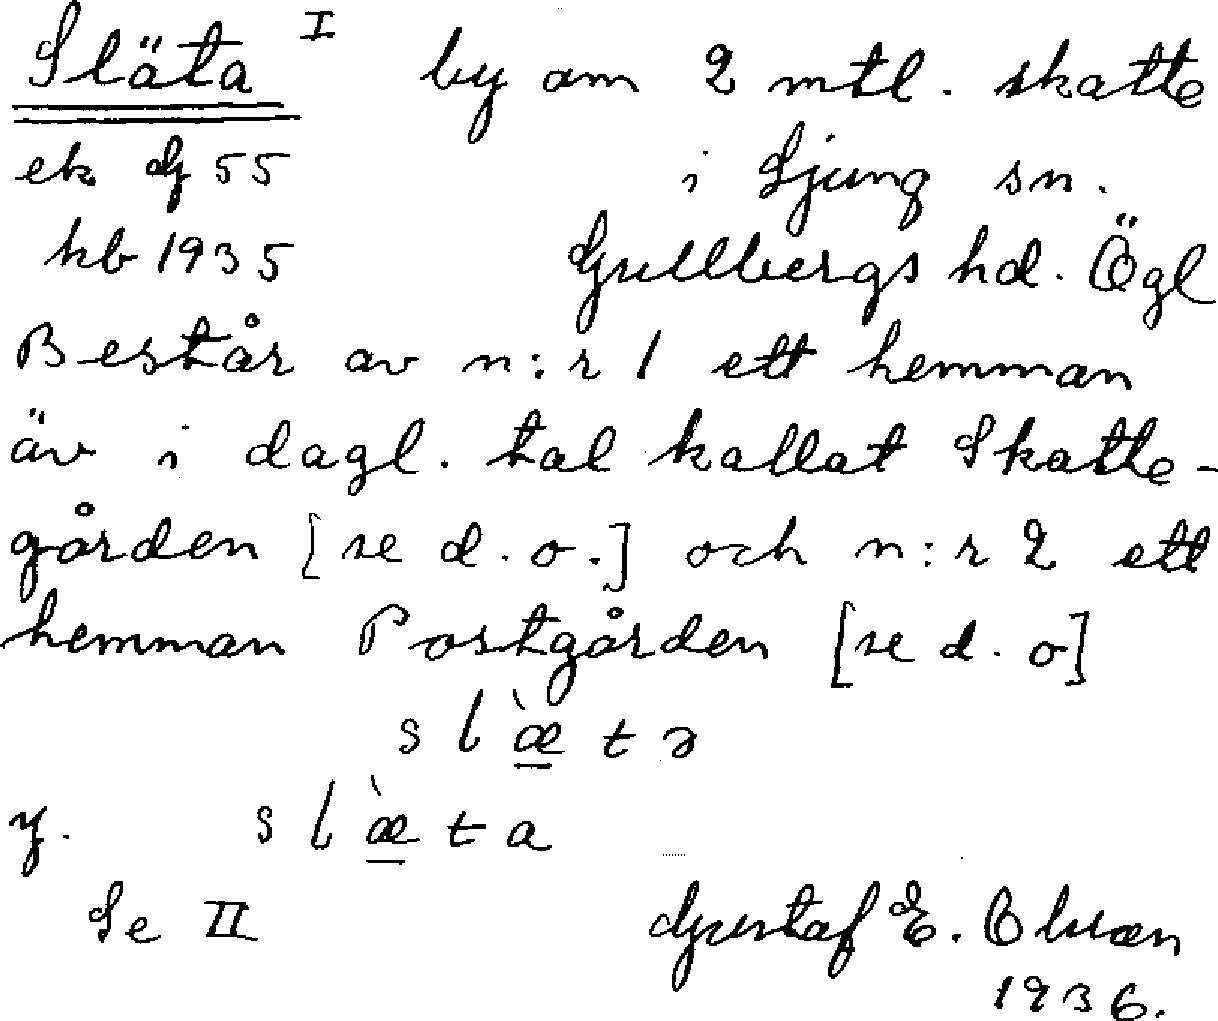 Släta I by om 2 mtl. skatte
ek df 55 i Ljung sn.
hb 1935 Gullbergs hd. Ögl
Består av n:r 1 ett hemman
äv i dagl. tal kallat Skatte-
gården [se d.o.] och n:r 2 ett
hemman Postgården [se d.o]
sl`æ̲tə
y. sl`æ̲ta
Se II Gustaf E. Olsson
1936.